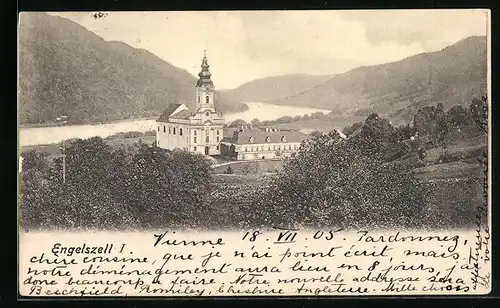 Engelszell I
Vienne 18 VII 05 Pardonnez,
chère cousine, que je n'ai point écrit, mais
notre déménagement aura lieu en 8 jours, j'ai
donc beaucoup à faire. Notre nouvelle adresse sera
Romiley, Cheshire Angleterre. Mille choses